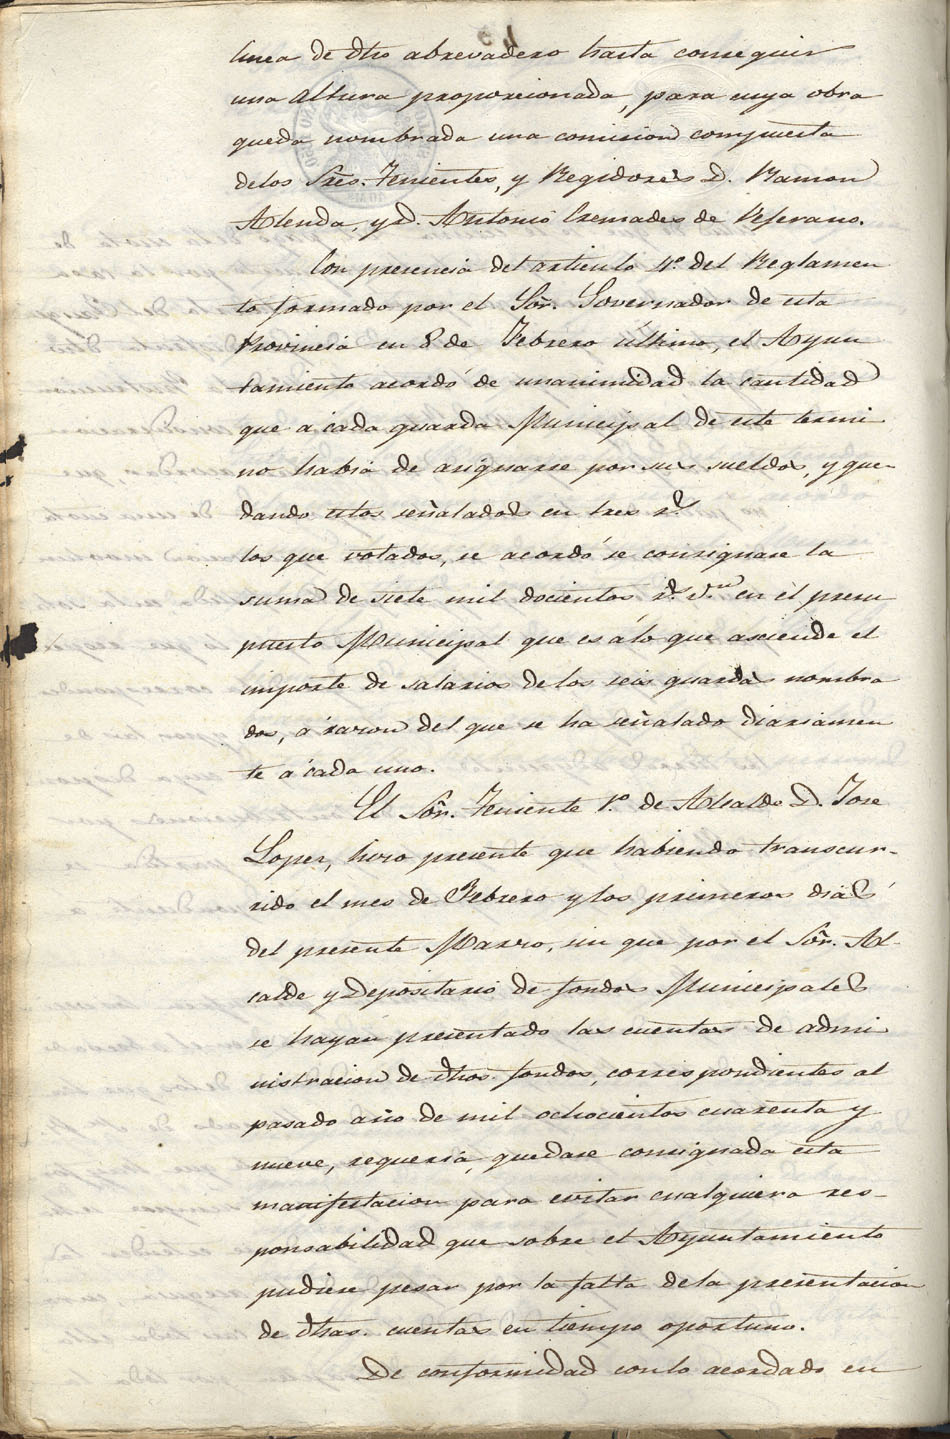 linea de dho abrevadero hasta conseguir
una altura proporcionada, para cuya obra
queda nombrada una comision compuesta
delos Sres. Tenientes, y Regidores D. Ramon
Alenda, y D. Antonio Cremades de Veferano.
Con presencia del articulo 4º. del Reglamen
to formado por el Sor. Governador de esta
Provincia en 8 de Febrero ultimo, el Ayun
tamiento acordó de unanimidad la cantidad
que á cada guarda Municipal de este termi
no habia de asignarse por sus sueldos, y que-
dando estos señalados en tres rs.
los que votados, se acordó se consignase la
suma de siete mil docientos rs. von en el presu
puesto Municipal que es á lo que asciende el
importe de salarios delos seis guardas nombra
dos, á razon del que se ha señalado diariamen
te á cada uno.
El Sor. Teniente 1º. de Alcalde D. Jose
Lopez, hizo presente que habiendo transcur-
rido el mes de Febrero y los primeros dias
del presente Marzo, sin que por el Sor. Al-
calde y Depositario de fondos Municipales
se hayan presentado las cuentas de admi
nistracion de dhos. fondos, correspondientes al
pasado año de mil ochocientos cuarenta y
nueve, requeria, quedase consignada esta
manifestacion para evitar cualquiera res-
ponsabilidad que sobre el Ayuntamiento
pudiese pesar por la falta dela presentacion
de dhas. cuentas en tiempo oportuno.
De conformidad con lo acordado en